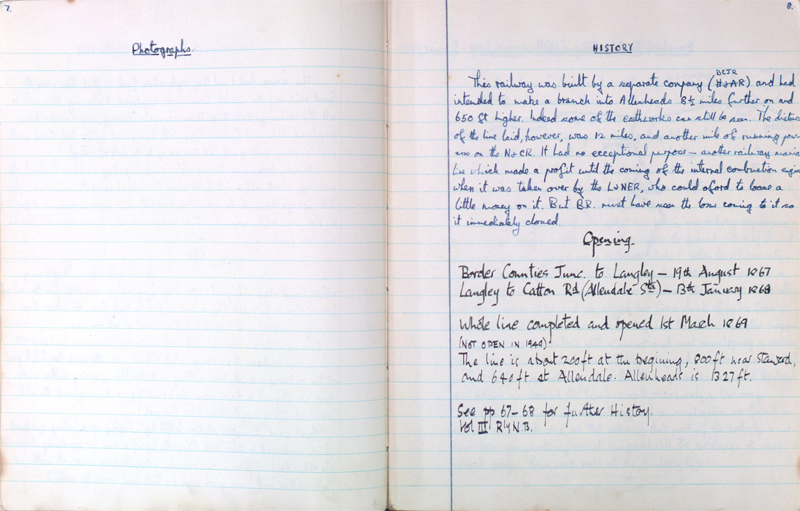 7.
Photographs.
8.
HISTORY
BCJR
This railway was built by a separate company (H&AR) and had
intended to make a branch into Allenheads 8½ miles further on and
650 ft higher. Indeed some of the earthworks can still be seen. The distance
of the line laid, however, was 12 miles, and another mile of running pow-
ers on the N&CR. It had no exceptional purpose — another railway mania
line which made a profit until the coming of the internal combustion engine
when it was taken over by the LNER, who could aford to loose a
little money on it. But B.R. must have seen the loss coming to it so
it immediately closed.
Opening.
Border Counties Junc. to Langley — 19th August 1867
Langley to Catton Rd (Allendale Stn) — 13th January 1868
Whole line completed and opened 1st March 1869
(NOT OPEN IN 1944)
The line is about 200ft at the begining, 800ft near Staward,
and 640ft at Allendale. Allenheads is 1327ft.
See pp 67–68 for further History.
Vol III Rly N.B.